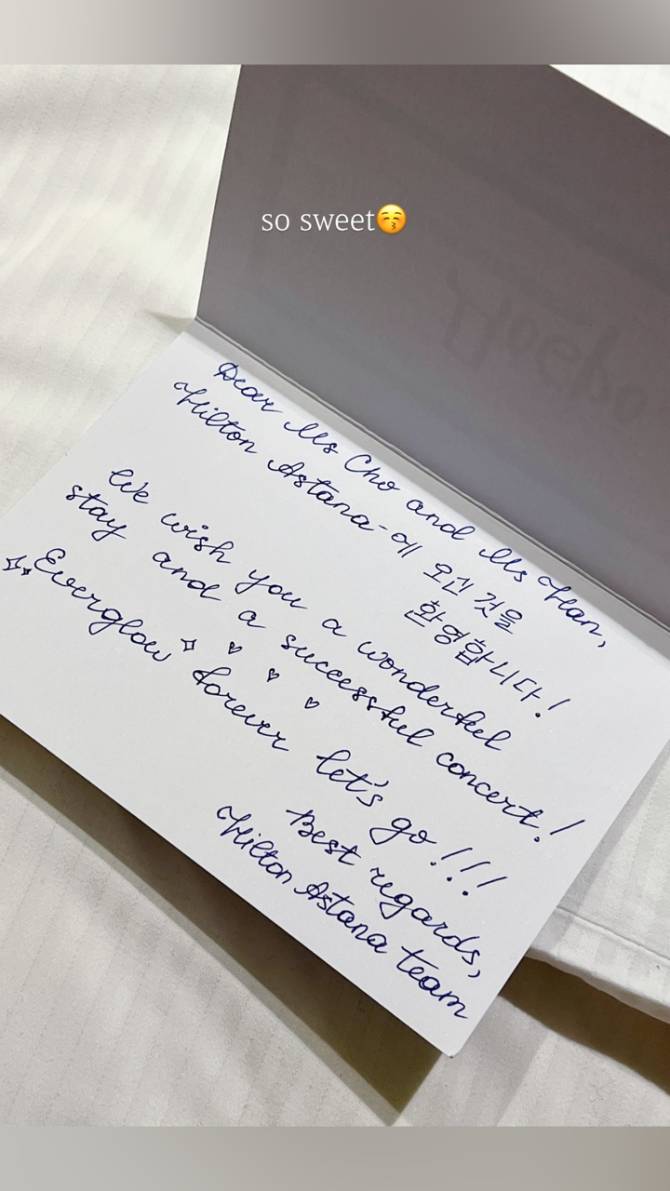 so sweet😚
Dear Ms Cho and Ms Han,
Hilton Astana-에 오신 것을
환영합니다!
We wish you a wonderful
stay and a successful concert!
Everglow forever let's go!!!
Best regards,
Hilton Astana team